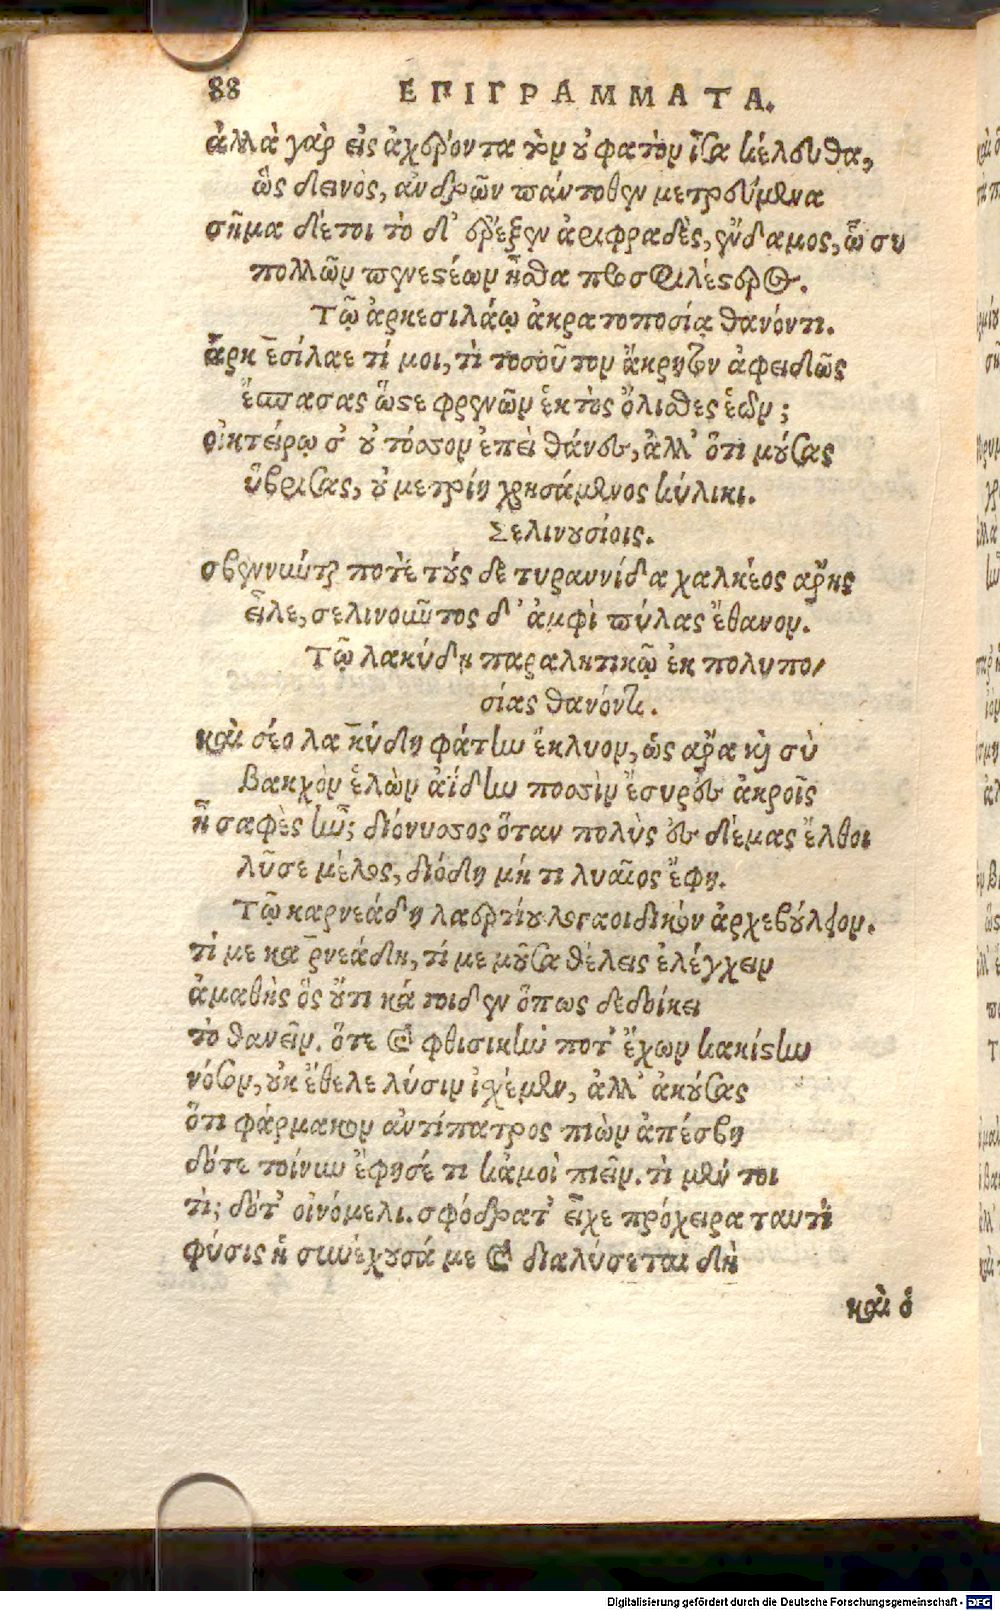 88 ΕΠΙΓΡΑΜΜΑΤΑ.
ἀλλὰ γὰρ εἰς ἀχέροντα τὸν οὐ φατὸν ἶσα κέλευθα,
ὣς δεινὸς, ἀνδρῶν πάντοθεν μετρούμενα
σῆμα δέ τοι τὸ δ' ἔρεξεν ἀριφραδὲς, εὔδαμος, ᾧ συ
πολλῶν πενεστέων ἦσθα προσφιλέστερος.
Τῷ ἀρκεσιλάῳ ἀκρατοποσίᾳ θανόντι.
ἀρκεσίλαε τί μοι, τὶ τοσοῦτον ἄκρητον ἀφειδῶς
ἔσπασας ὥστε φρενῶν ἐκτὸς ὄλισθες ἑῶν;
οἰκτείρω σ' οὐ τόσσον ἐπεὶ θάνες, ἀλλ' ὅτι μούσας
ὕβρισας, οὐ μετρίῃ χρησάμενος κύλικι.
Σελινουσίοις.
σβεννύντας ποτὲ τούς δε τυραννίδα χαλκέος ἄρης
εἷλε, σελινοῦντος δ' ἀμφὶ πύλας ἔθανον.
Τῷ λακύδῃ παραλητικῷ ἐκ πολυπο/
σίας θανόντι.
καὶ σέο λακύδη φάτιν ἔκλυον, ὡς ἄρα καὶ σὺ
βακχὸν ἑλὼν ἀΐδην ποσσὶν ἔσυρες ἀκροῖς
ἦ σαφὲς ἦν; διόνυσσος ὅταν πολὺς ἐς δέμας ἔλθοι
λῦσε μέλος, διόδη μή τι λυαῖος ἔφη.
Τῷ καρνεάδῃ λαερτίου λογαοιδικὸν ἀρχεβούλειον.
τί με καρνεάδη, τί με μοῦσα θέλεις ἐλέγχειν
ἀμαθὴς ὃς οὔτι κάτοιδεν ὅπως δεδοίκει
τὸ θανεῖν. ὅτε καὶ φθισικὴν ποτ' ἔχων κακίστην
νόσον, οὐκ ἔθελε λύσιν ἰσχέμεν, ἀλλ' ἀκούσας
ὅτι φάρμακον ἀντίπατρος πιὼν ἀπέσβη
δότε τοίνυν ἔφησέ τι κἀμοὶ πιεῖν. τὶ μέν τοι
τὶ; δότ' οἰνόμελι. σφόδρατ' εἶχε πρόχειρα ταυτὶ
φύσις ἡ συνέχουσά με καὶ διαλύσεται δὴ
καὶ ὁ
Digitalisierung gefördert durch die Deutsche Forschungsgemeinschaft - DFG